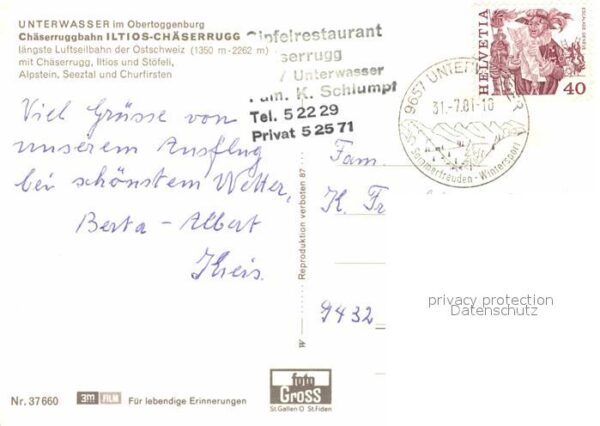 UNTERWASSER im Obertoggenburg
Chäserruggbahn ILTIOS-CHÄSERRUGG
längste Luftseilbahn der Ostschweiz (1350 m - 2262 m)
mit Chäserrugg, Iltios und Stöfeli,
Alpstein, Seeztal und Churfirsten
Gipfelrestaurant
Chäserrugg
Unterwasser
Fam. K. Schlumpf
Tel. 5 22 29
Privat 5 25 71
9657 UNTERWASSER
31.-7.81-10
Sommerfreuden - Wintersport
HELVETIA
ESCALADE GENÈVE
40
Viel Grüsse von
unserem Ausflug
bei schönstem Wetter,
Berta - Albert
Theis.
Fam.
K. Fr
9432
Reproduktion verboten 87
privacy protection
Datenschutz
Nr. 37660
3M FILM
Für lebendige Erinnerungen
foto
Gross
St.Gallen O St.Fiden